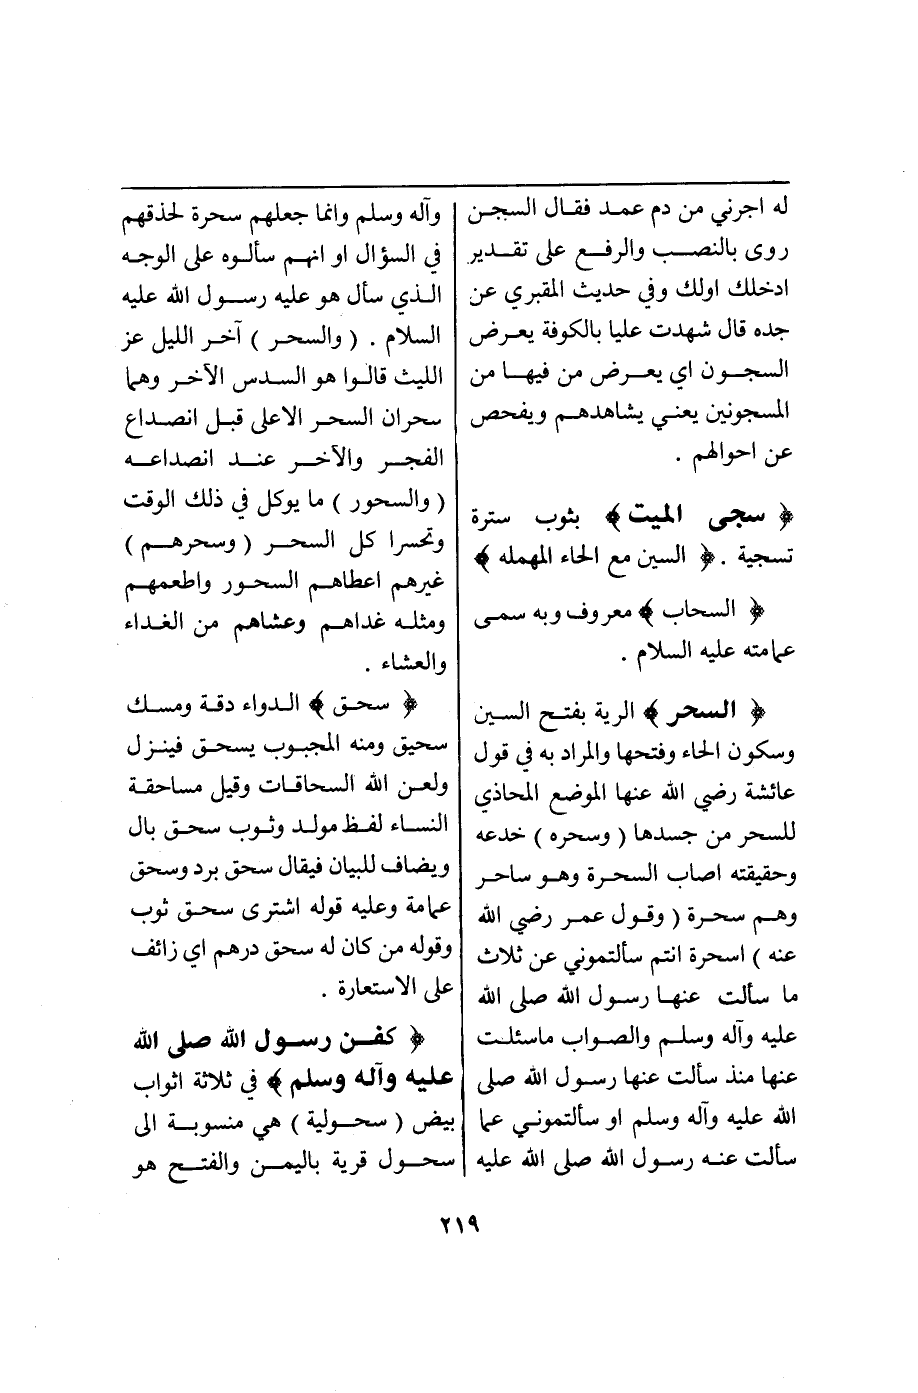 له اجرني من دم عمد فقال السجن
روى بالنصب والرفع على تقدير
ادخلك اولك وفي حديث المقبري عن
جده قال شهدت عليا بالكوفة يعرض
السجون اي يعرض من فيها من
المسجونين يعني يشاهدهم ويفحص
عن احوالهم .
﴿ سجى الميت ﴾ بثوب سترة
تسجية . ﴿ السين مع الحاء المهمله ﴾
﴿ السحاب ﴾ معروف وبه سمى
عمامته عليه السلام .
﴿ السحر ﴾ الرية بفتح السين
وسكون الحاء وفتحها والمراد به في قول
عائشة رضي الله عنها الموضع المحاذي
للسحر من جسدها ( وسحره ) خدعه
وحقيقته اصاب السحرة وهو ساحر
وهم سحرة ( وقول عمر رضي الله
عنه ) اسحرة انتم سألتموني عن ثلاث
ما سألت عنها رسول الله صلى الله
عليه وآله وسلم والصواب ماسئلت
عنها منذ سألت عنها رسول الله صلى
الله عليه وآله وسلم او سألتموني عما
سألت عنه رسول الله صلى الله عليه
وآله وسلم وانما جعلهم سحرة لحذقهم
في السؤال او انهم سألوه على الوجه
الذي سأل هو عليه رسول الله عليه
السلام . ( والسحر ) آخر الليل عز
الليث قالوا هو السدس الآخر وهما
سحران السحر الاعلى قبل انصداع
الفجر والآخر عند انصداعه
( والسحور ) ما يوكل في ذلك الوقت
وتحسرا كل السحر ( وسحرهم )
غيرهم اعطاهم السحور واطعمهم
ومثله غداهم وعشاهم من الغداء
والعشاء .
﴿ سحق ﴾ الدواء دقة ومسك
سحيق ومنه المجبوب يسحق فينزل
ولعن الله السحاقات وقيل مساحقة
النساء لفظ مولد وثوب سحق بال
ويضاف للبيان فيقال سحق برد وسحق
عمامة وعليه قوله اشترى سحق ثوب
وقوله من كان له سحق درهم اي زائف
على الاستعارة .
﴿ كفن رسول الله صلى الله
عليه وآله وسلم ﴾ في ثلاثة اثواب
بيض ( سحولية ) هي منسوبة الى
سحول قرية باليمن والفتح هو
٢١٩